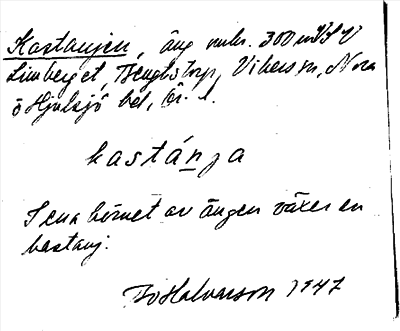 Kastanjen, äng omkr. 300 m V S V
Limberget, Bengtstorp, Vikers sn, Nora
o Hjulsjö bd, Ör. l.
kastánja
I ena hörnet av ängen växer en
kastanj.
Bo Halvarson 1947